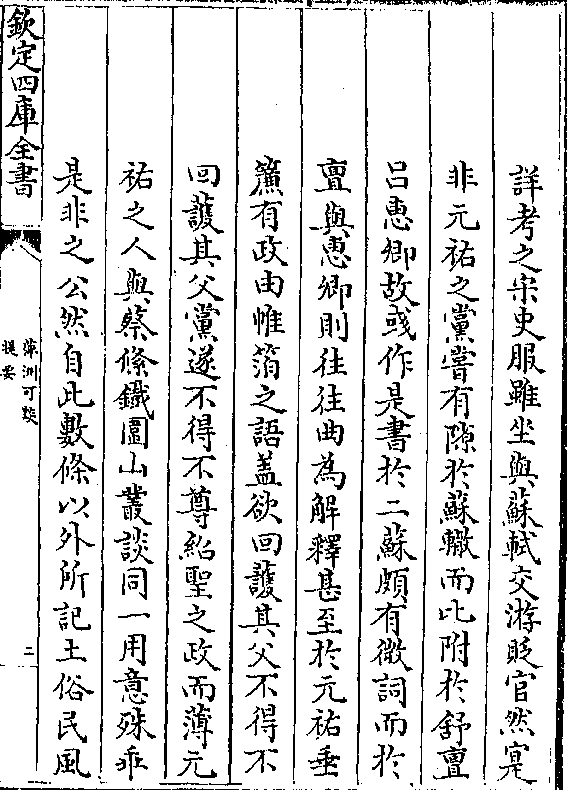 詳考之宋史服雖坐與蘇軾交游貶官然寔
非元祐之黨嘗有隙於蘇轍而比附於舒亶
吕惠卿故彧作是書於二蘇頗有微詞而於
亶與惠卿則往往曲為解釋甚至於元祐垂
簾有政由帷箔之語葢欲回護其父不得不
回護其父黨遂不得不尊紹聖之政而薄元
祐之人與蔡絛鐵圍山叢談同一用意殊乖
是非之公然自此數條以外所記土俗民風
欽定四庫全書
萍洲可談
提要
二